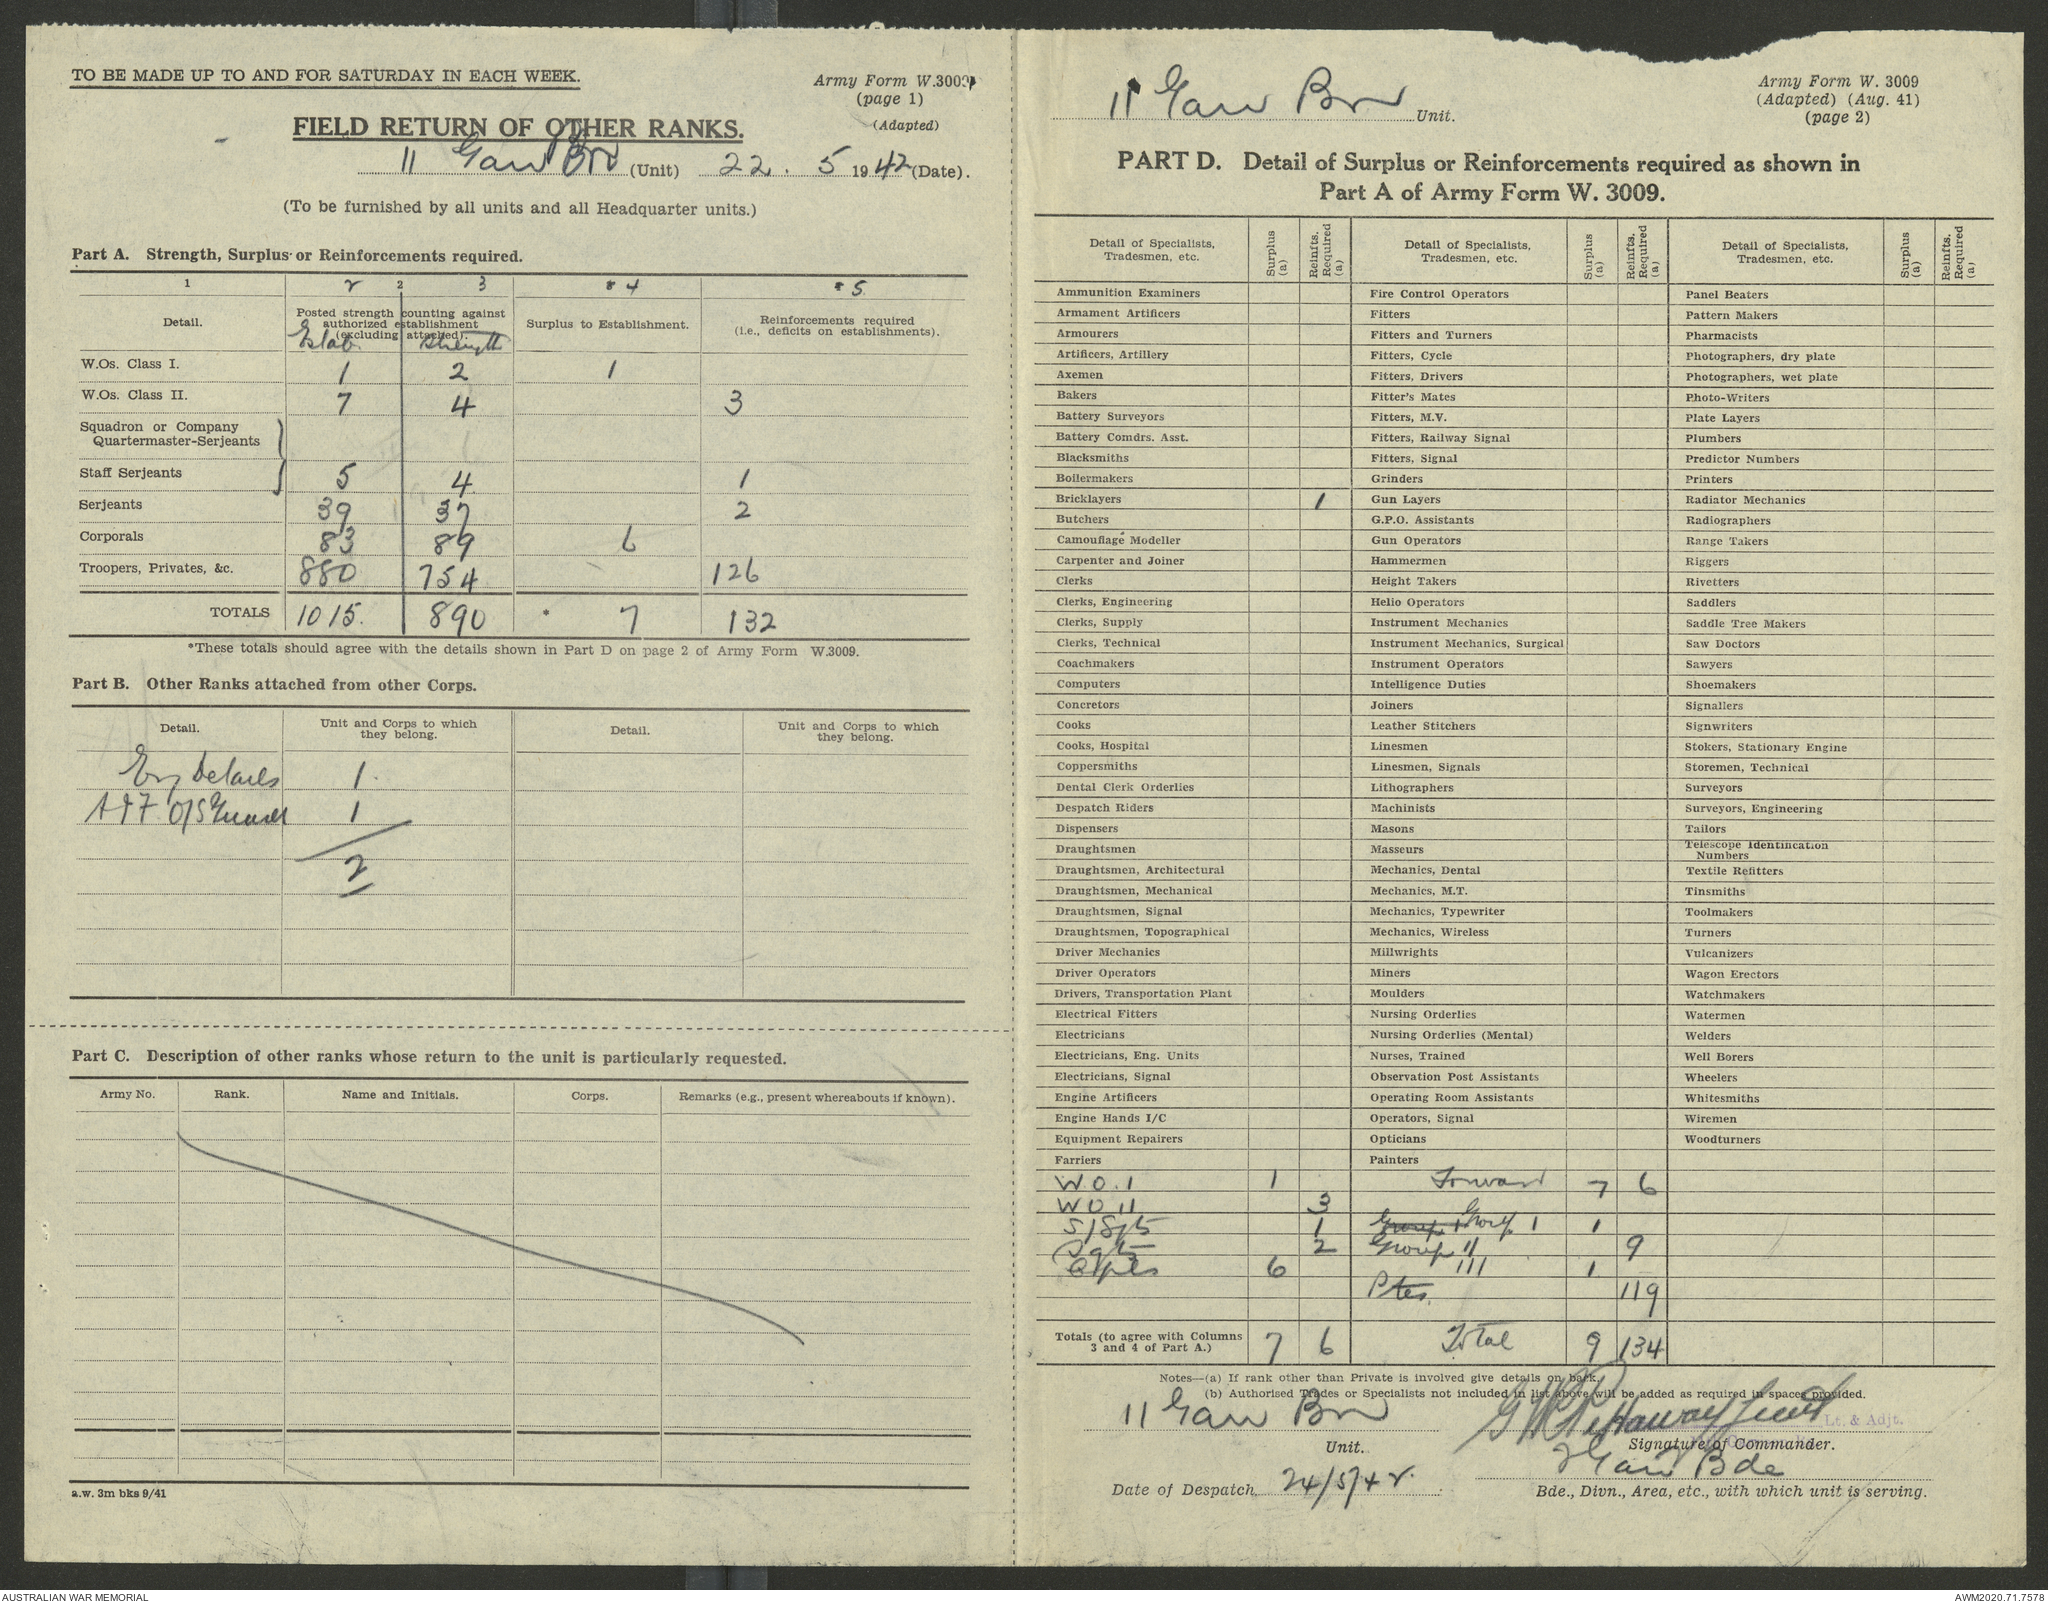 TO BE MADE UP TO AND FOR SATURDAY IN EACH WEEK.
Army Form W.3009
(page 1)
(Adapted)
FIELD RETURN OF OTHER RANKS.
11 Garr Bn (Unit) 22. 5 1942 (Date).
(To be furnished by all units and all Headquarter units.)
Part A. Strength, Surplus or Reinforcements required.
1 2 2 3 * 4 * 5
Detail. Posted strength counting against authorized establishment (excluding attached). Surplus to Establishment. Reinforcements required (i.e., deficits on establishments).
Estab. Strength
W.Os. Class I. 1 2 1
W.Os. Class II. 7 4 3
Squadron or Company
Quartermaster-Serjeants
Staff Serjeants 5 4 1
Serjeants 39 37 2
Corporals 83 89 6
Troopers, Privates, &c. 880 754 126
TOTALS 1015. 890 * 7 132
*These totals should agree with the details shown in Part D on page 2 of Army Form W.3009.
Part B. Other Ranks attached from other Corps.
Detail. Unit and Corps to which they belong. Detail. Unit and Corps to which they belong.
1
AIF 1
2
Part C. Description of other ranks whose return to the unit is particularly requested.
Army No. Rank. Name and Initials. Corps. Remarks (e.g., present whereabouts if known).
a.w. 3m bks 9/41
11 Garr Bn Unit.
Army Form W. 3009
(Adapted) (Aug. 41)
(page 2)
PART D. Detail of Surplus or Reinforcements required as shown in
Part A of Army Form W. 3009.
Detail of Specialists, Tradesmen, etc. Surplus (a) Reinfts. Required (a) Detail of Specialists, Tradesmen, etc. Surplus (a) Reinfts. Required (a) Detail of Specialists, Tradesmen, etc. Surplus (a) Reinfts. Required (a)
Ammunition Examiners Fire Control Operators Panel Beaters
Armament Artificers Fitters Pattern Makers
Armourers Fitters and Turners Pharmacists
Artificers, Artillery Fitters, Cycle Photographers, dry plate
Axemen Fitters, Drivers Photographers, wet plate
Bakers Fitter's Mates Photo-Writers
Battery Surveyors Fitters, M.V. Plate Layers
Battery Comdrs. Asst. Fitters, Railway Signal Plumbers
Blacksmiths Fitters, Signal Predictor Numbers
Boilermakers Grinders Printers
Bricklayers 1 Gun Layers Radiator Mechanics
Butchers G.P.O. Assistants Radiographers
Camouflage Modeller Gun Operators Range Takers
Carpenter and Joiner Hammermen Riggers
Clerks Height Takers Rivetters
Clerks, Engineering Helio Operators Saddlers
Clerks, Supply Instrument Mechanics Saddle Tree Makers
Clerks, Technical Instrument Mechanics, Surgical Saw Doctors
Coachmakers Instrument Operators Sawyers
Computers Intelligence Duties Shoemakers
Concretors Joiners Signallers
Cooks Leather Stitchers Signwriters
Cooks, Hospital Linesmen Stokers, Stationary Engine
Coppersmiths Linesmen, Signals Storemen, Technical
Dental Clerk Orderlies Lithographers Surveyors
Despatch Riders Machinists Surveyors, Engineering
Dispensers Masons Tailors
Draughtsmen Masseurs Telescope Identification Numbers
Draughtsmen, Architectural Mechanics, Dental Textile Refitters
Draughtsmen, Mechanical Mechanics, M.T. Tinsmiths
Draughtsmen, Signal Mechanics, Typewriter Toolmakers
Draughtsmen, Topographical Mechanics, Wireless Turners
Driver Mechanics Millwrights Vulcanizers
Driver Operators Miners Wagon Erectors
Drivers, Transportation Plant Moulders Watchmakers
Electrical Fitters Nursing Orderlies Watermen
Electricians Nursing Orderlies (Mental) Welders
Electricians, Eng. Units Nurses, Trained Well Borers
Electricians, Signal Observation Post Assistants Wheelers
Engine Artificers Operating Room Assistants Whitesmiths
Engine Hands I/C Operators, Signal Wiremen
Equipment Repairers Opticians Woodturners
Farriers Painters
W O . 1 1 Forward 7 6
W O 11 3
S/Sgts 1 Group 1 Group 1 1
Sgts 2 Group 11 9
Cpls 6 111 1
Ptes. 119
Totals (to agree with Columns 3 and 4 of Part A.) 7 6 Total 9 134
Notes—(a) If rank other than Private is involved give details on back.
(b) Authorised Trades or Specialists not included in list above will be added as required in spaces provided.
11 Garr Bn Lt. & Adjt.
Unit. Signature of Commander.
Garr Bde
Date of Despatch 24/5/42. Bde., Divn., Area, etc., with which unit is serving.
AUSTRALIAN WAR MEMORIAL AWM2020.71.7578